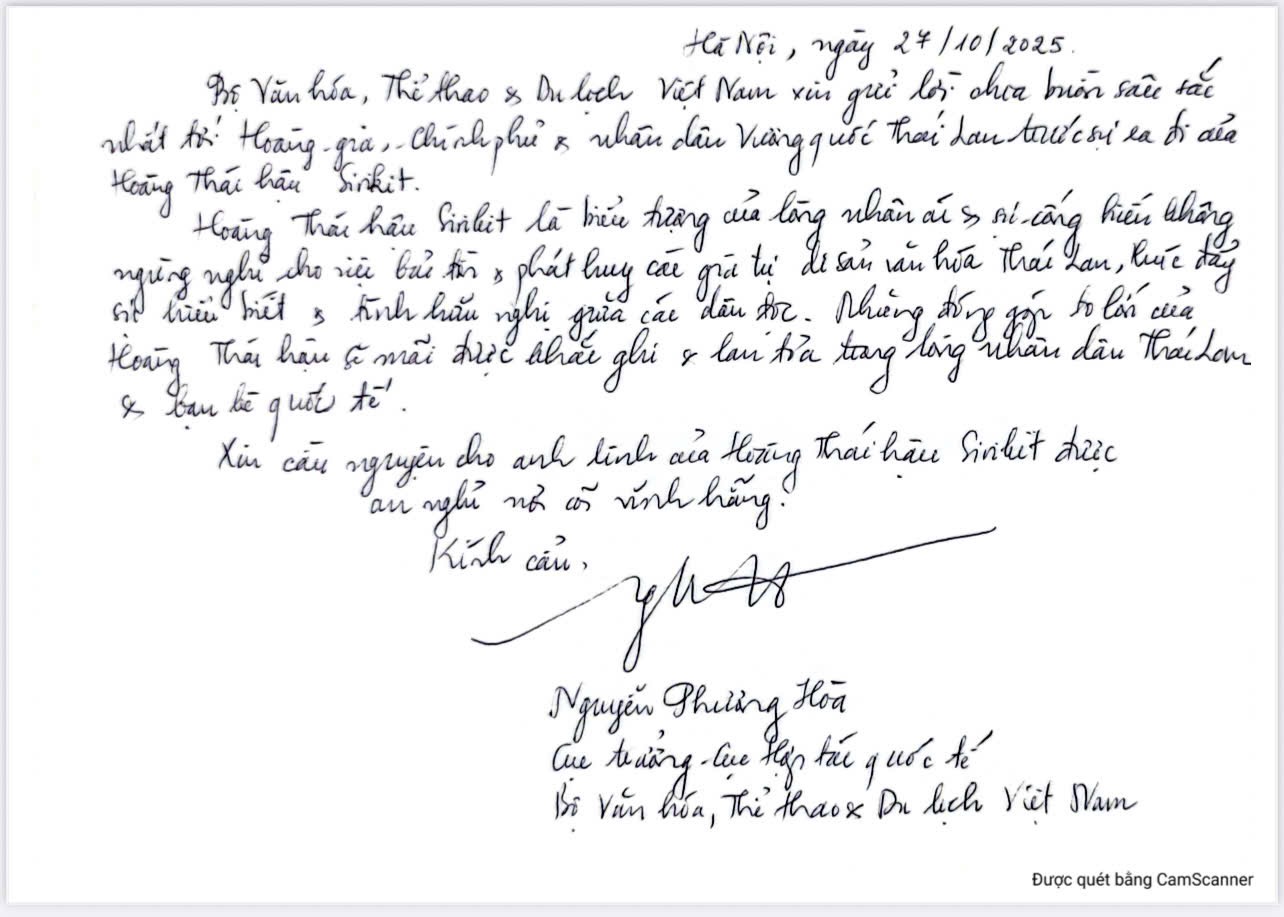 Hà Nội, ngày 27/10/2025.
Bộ Văn hóa, Thể thao & Du lịch Việt Nam xin gửi lời chia buồn sâu sắc
nhất tới Hoàng gia, Chính phủ & nhân dân Vương quốc Thái Lan trước sự ra đi của
Hoàng Thái hậu Sirikit.
Hoàng Thái hậu Sirikit là biểu tượng của lòng nhân ái & sự cống hiến không
ngừng nghỉ cho việc bảo tồn & phát huy các giá trị di sản văn hóa Thái Lan, thúc đẩy
sự hiểu biết & tình hữu nghị giữa các dân tộc. Những đóng góp to lớn của
Hoàng Thái hậu sẽ mãi được khắc ghi & lan tỏa trong lòng nhân dân Thái Lan
& bạn bè quốc tế.
Xin cầu nguyện cho anh linh của Hoàng Thái hậu Sirikit được
an nghỉ nơi cõi vĩnh hằng.
Kính cẩn,
Nguyễn Phương Hòa
Cục trưởng Cục Hợp tác quốc tế
Bộ Văn hóa, Thể thao & Du lịch Việt Nam
Được quét bằng CamScanner